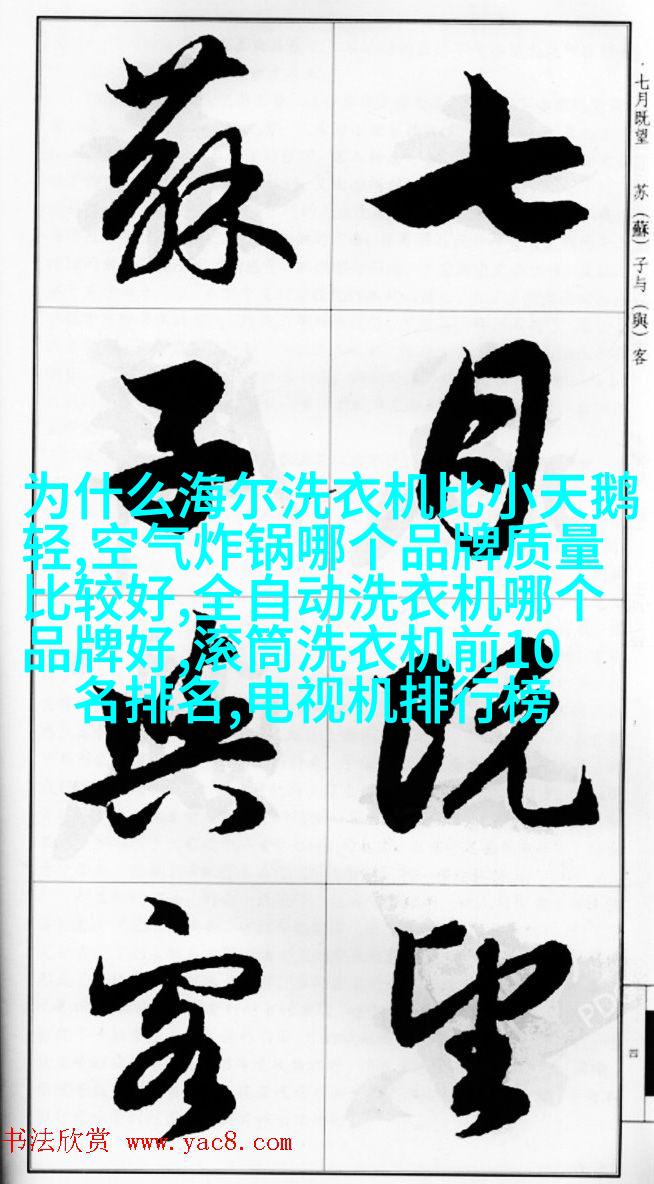 七月既望
蘇子與客
·七月既望 苏(蘇)子与(與)客
为什么海尔洗衣机比小天鹅
轻,空气炸锅哪个品牌质量
比较好,全自动洗衣机哪个
品牌好,滚筒洗衣机前10
名排名,电视机排行榜
四
书法欣赏 www.yac8.com